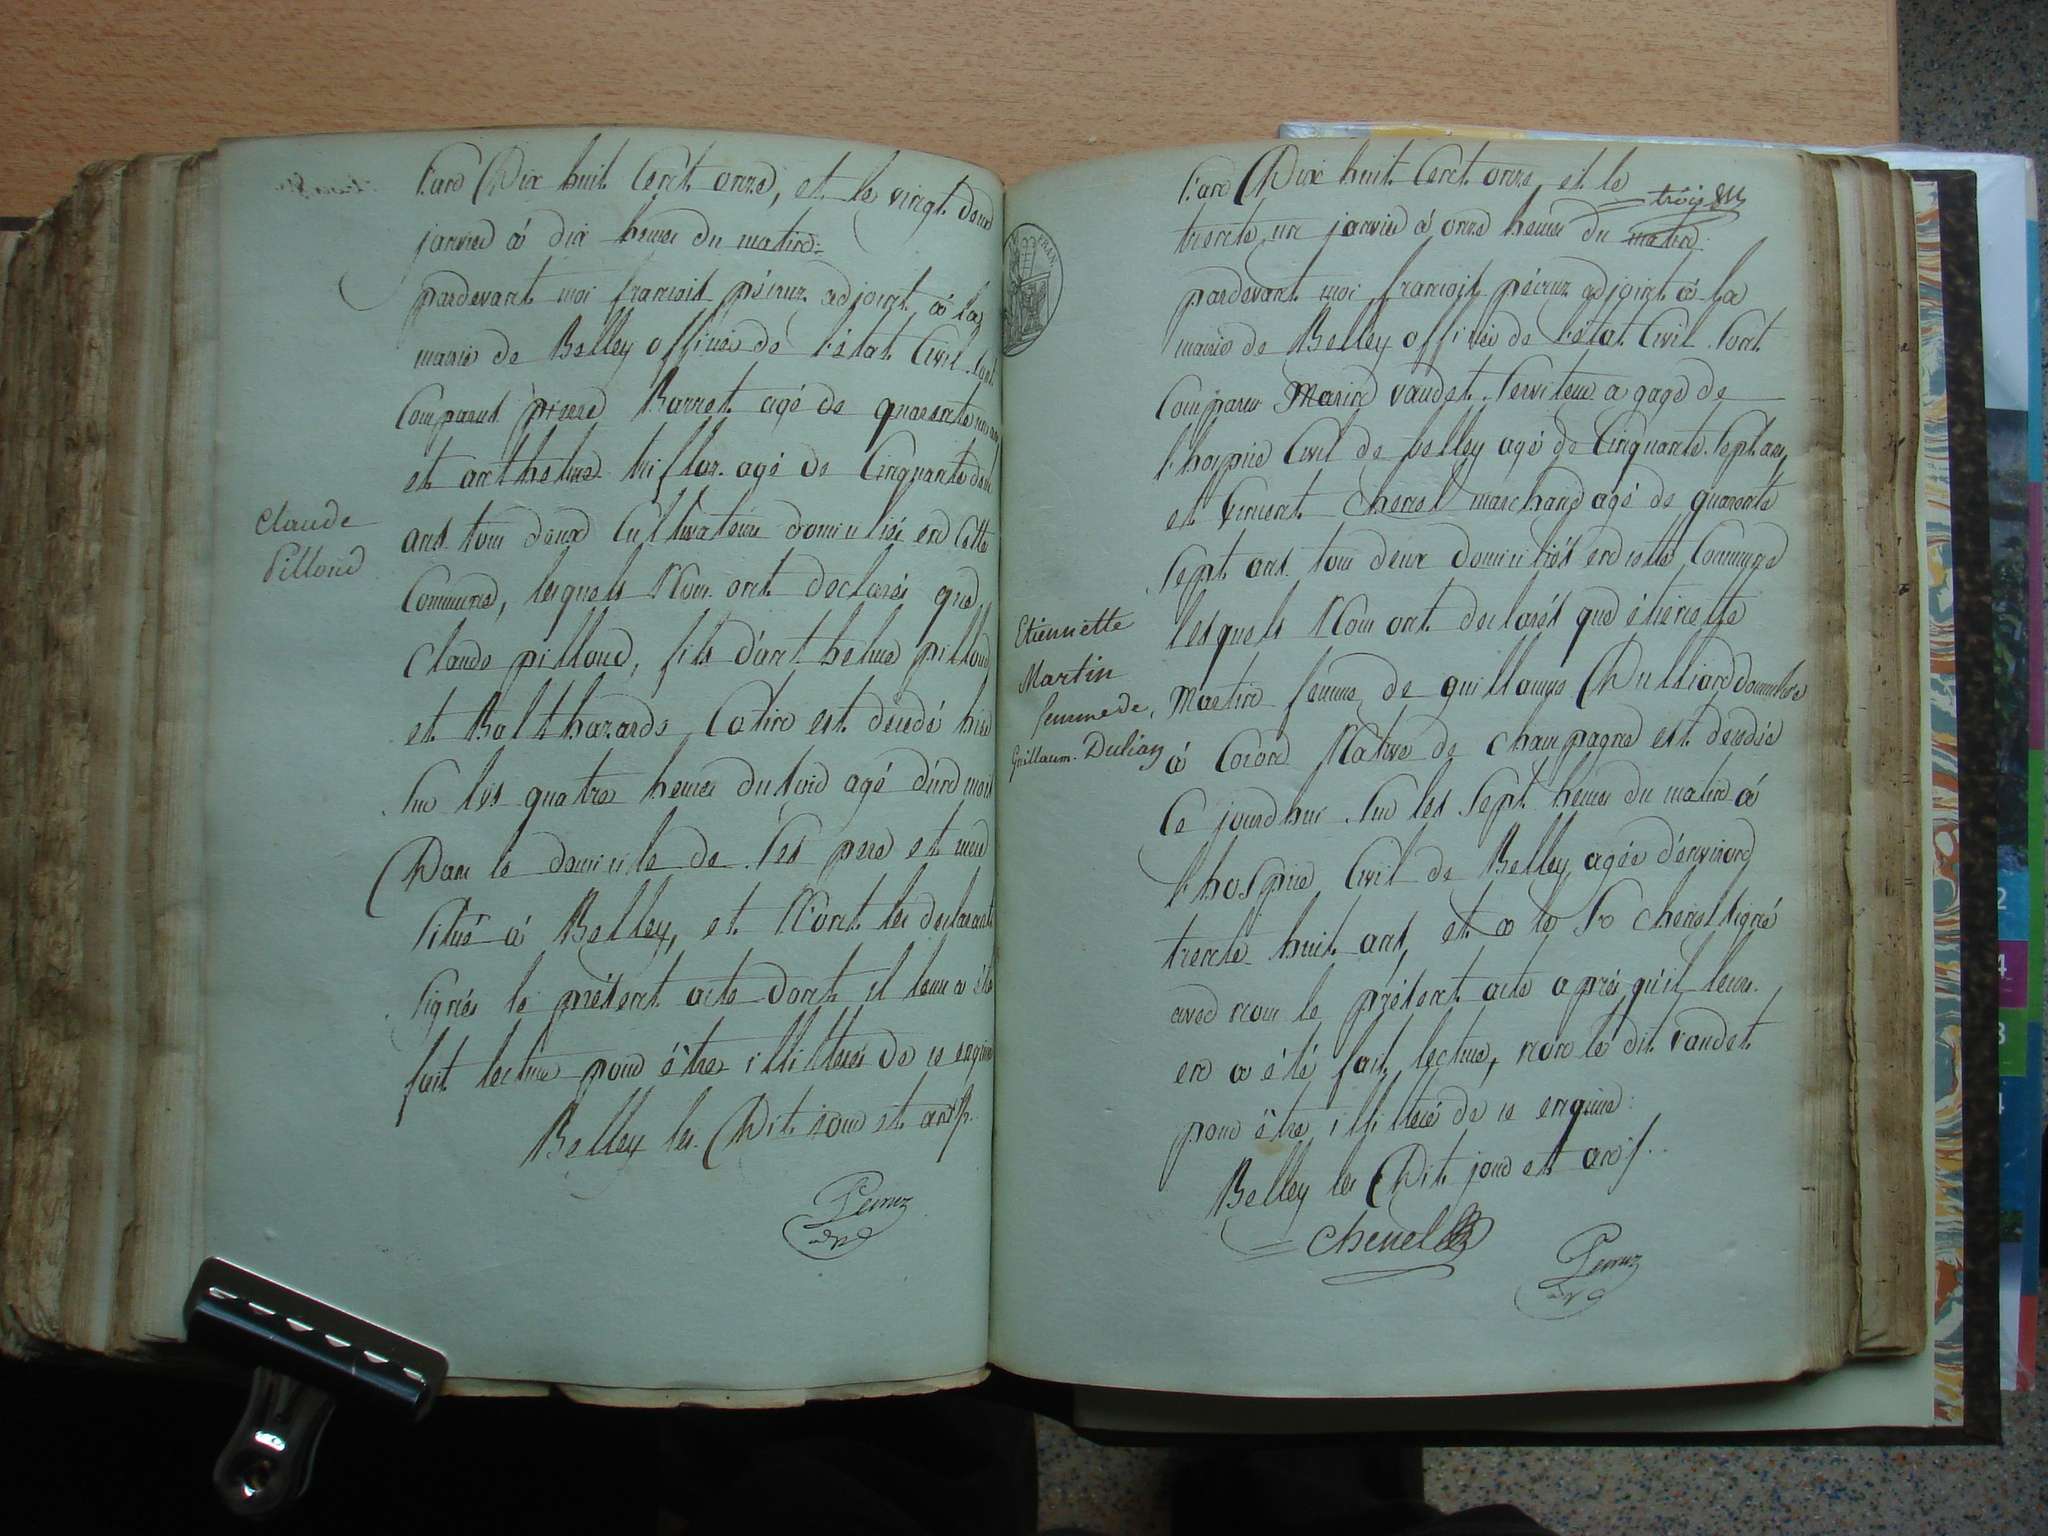 l'an Dix huit Cent onze, et le vingt deux
janvier à dix heures du matin
pardevant moi françois péruz adjoint à la
mairie de Belley officier de l'état Civil Sont
Comparus pierre Barret agé de quarente un ans
et anthelme agé de Cinquante deux
ans tous deux Cultivateurs domiciliés en Cette
Commune, lesquels Nous ont declarés que
Claude pilloud, fils d'anthelme pilloud
et Balthazarde Catin est décédé hier
Sur les quatre heures du soir agé d'un mois
Dans le domicile de Ses pere et mere
Situé à Belley, et N'ont les declarants
Signés le présent acte dont il leur a été
fait lecture pour être illitterés de ce enquis
Belley les Dit jour et an
Peruz
Claude
Pilloud
l'an Dix huit Cent onze et le
trois
trente un janvier à onze heures du matin
pardevant moi françois péruz adjoint à la
mairie de Belley officier de l'état Civil Sont
Comparus Marin vaudet Serviteur a gage de
l'hospice Civil de belley agé de Cinquante Sept ans,
et Vincent Chenel marchand agé de quarente
Sept ans tous deux domiciliés en cette Commune
lesquels Nous ont declarés que étienette
Martin femme de guillaume Dulliard domiciliée
à Coron Native de Champagne est decedée
Ce jourd'hui Sur les Sept heures du matin à
l'hospice Civil de Belley, agée d'environ
trente huit ans, et a le Sr Chenel signé
avec nous le présent acte après qu'il leurs
en a été fait lecture, non le dit vaudet
pour être illitteré de ce enquis
Belley les Dit jour et an
Chenel
Peruz
Etiennette
Martin
femme de
Guillaum. Dulian
FRAN